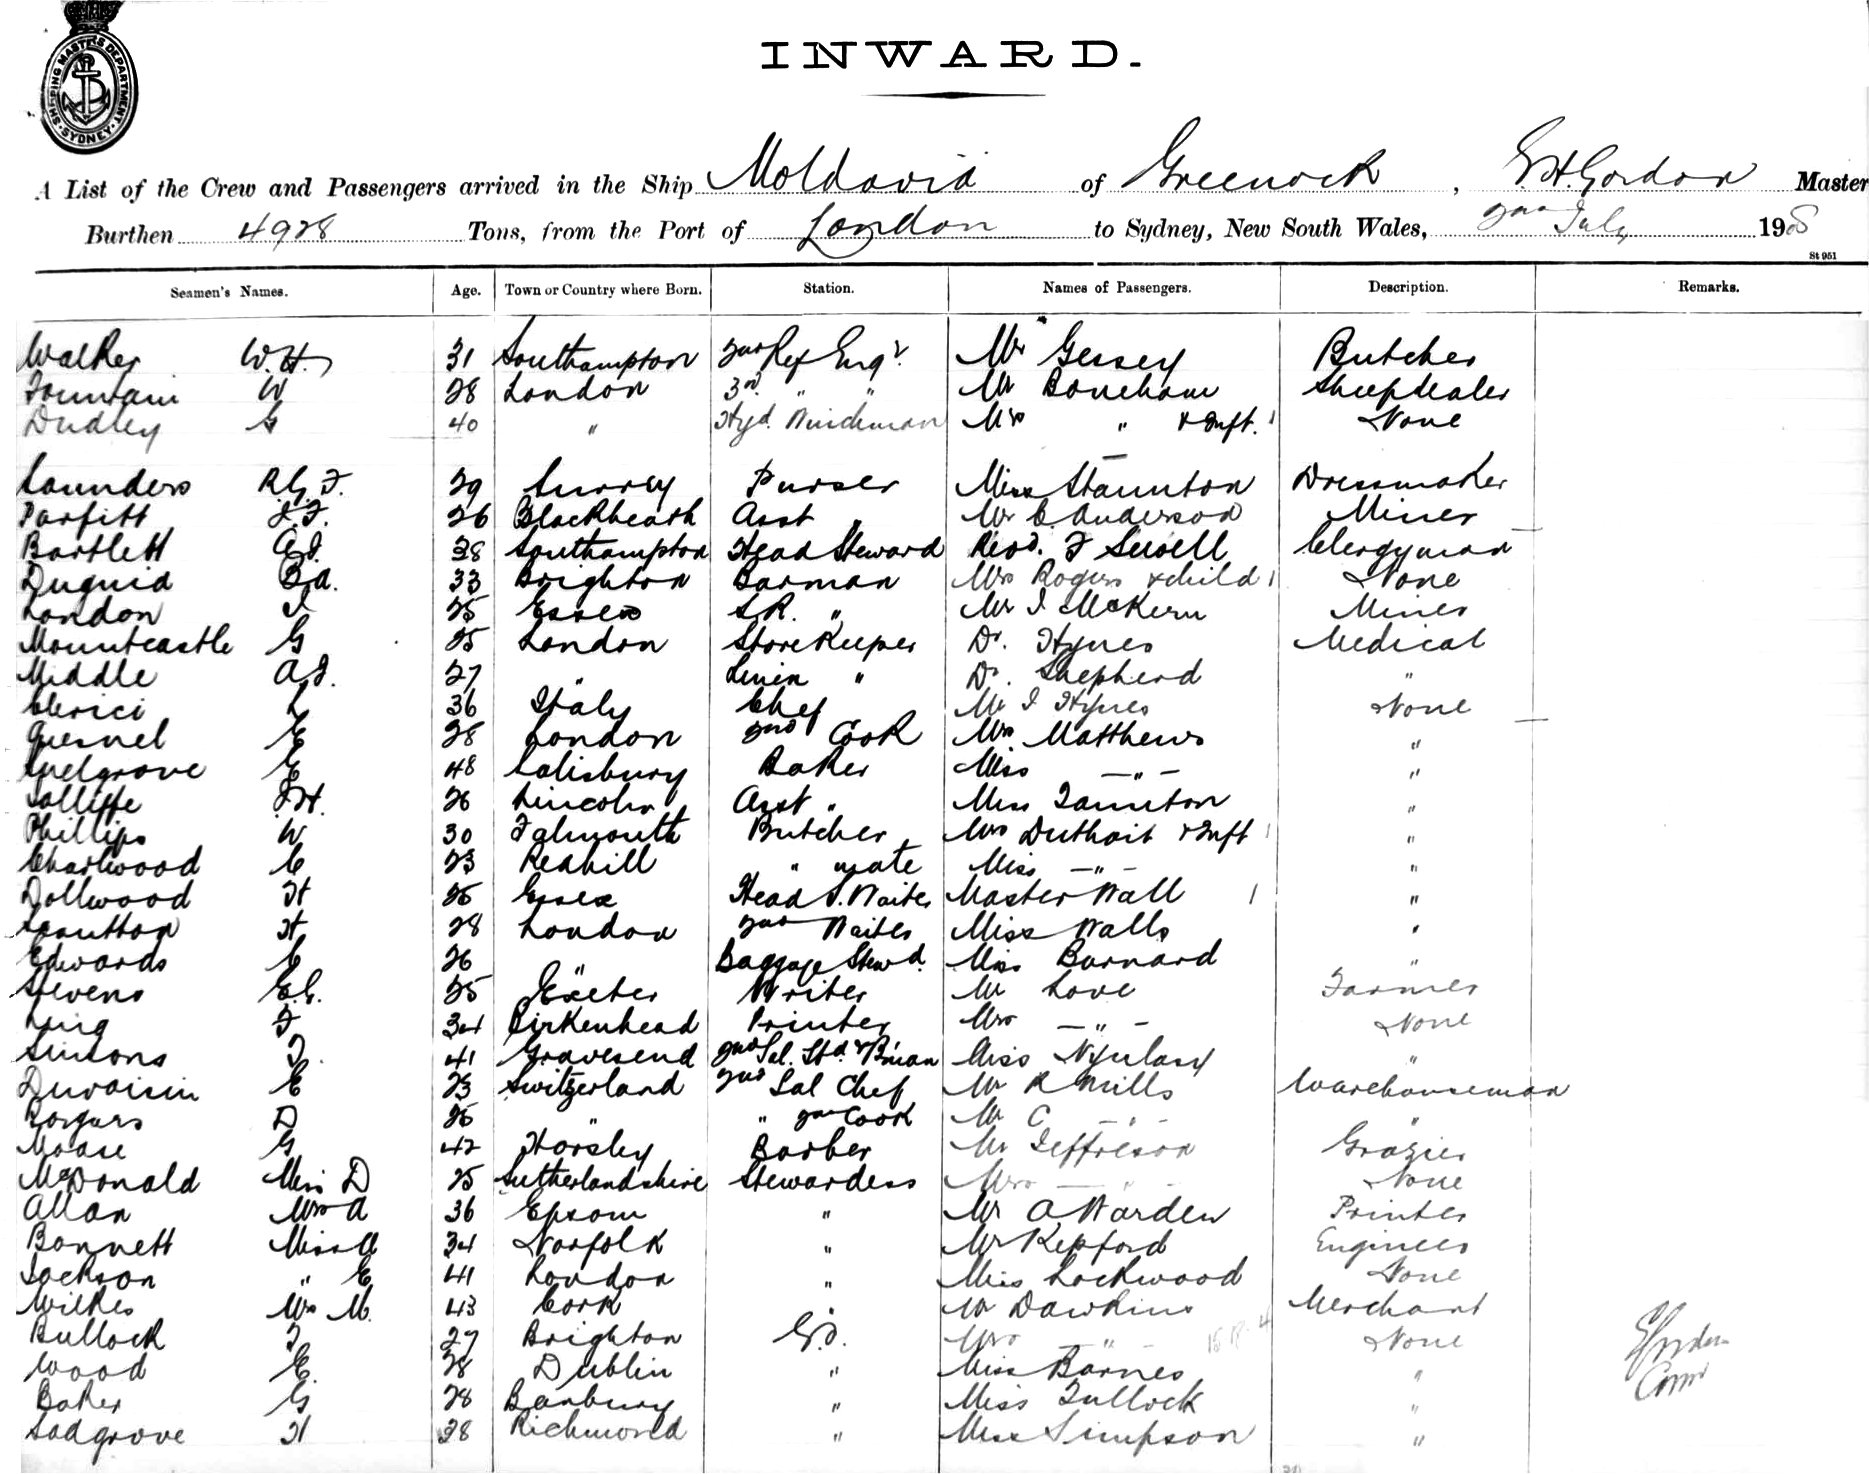 SHIPPING MASTERS DEPARTMENT SYDNEY
INWARD.
A List of the Crew and Passengers arrived in the Ship Moldavia of Greenock, E. H. Gordon Master
Burthen 4928 Tons, from the Port of London to Sydney, New South Wales, 2nd July 1908
St 951
Seamen's Names. Age. Town or Country where Born. Station. Names of Passengers. Description. Remarks.
Walker W. H. 31 Southampton 2nd Ref Engr. Mr Gessey Butcher
Fountain W 28 London 3rd " " Mr Boneham Sheepdealer
Dudley G 40 " Hyd. Winchman Mrs " & Inft. 1 None
Saunders R. G. F. 29 Surrey Purser Miss Staunton Dressmaker
Parfitt F. F. 26 Blackheath Asst " Mr C. Anderson Miner
Bartlett A J. 38 Southampton Head Steward Revd. F Sewell Clergyman
Duguid B. A. 33 Brighton Barman Mrs Rogers & child 1 None
London J 25 Essex S. R. " Mr J McKern Miner
Mountcastle G 25 London StoreKeeper Dr. Hynes Medical
Middle A J. 27 " Linen " Dr. Shepherd "
Clerici L 36 Italy Chef Mr J Hynes None
Quesnel E 28 London 2nd Cook Mrs Matthews "
Snelgrove E 48 Salisbury Baker Miss — " — "
Jolliffe F. H. 26 Lincoln Asst " Miss Taunton "
Phillips W 30 Falmouth Butcher Mrs Duthoit & Inft 1 "
Charlwood C 23 Redhill " mate Miss — " — "
Dollwood H 25 Essex Head S. Waiter Master Wall 1 "
H 28 London 2nd Waiter Miss Walls "
Edwards C 26 " Baggage Stewd. Miss Barnard "
Stevens E. C. 25 Exeter Writer Mr Love Farmer
King F 34 Birkenhead Printer Mrs — " — None
Simsons F. 41 Gravesend 2nd Sal. Std. & B'man Miss "
Duvoisin E 23 Switzerland 2nd Sal Chef Mr R Mills Warehouseman
D 25 " " 2nd Cook Mr C — " — "
Moase G 42 Horsley Barber Mr Jeffreson Grazier
McDonald Miss D 25 Sutherlandshire Stewardess Mrs — " — None
Allan Mrs A 36 Epsom " Mr A Warden Printer
Bonnett Miss A 34 Norfolk " Mr Kepford Engineer
Jackson " E 41 London " Miss Lockwood None
Wilkes Mrs M. 43 Cork " Mr Dawkins Merchant
Bullock F 27 Brighton G. S. Mrs — " None
Wood E. 28 Dublin " Miss Barnes "
Baker G 28 Banbury " Miss Tullock "
Sadgrove H 38 Richmond " Miss Simpson "